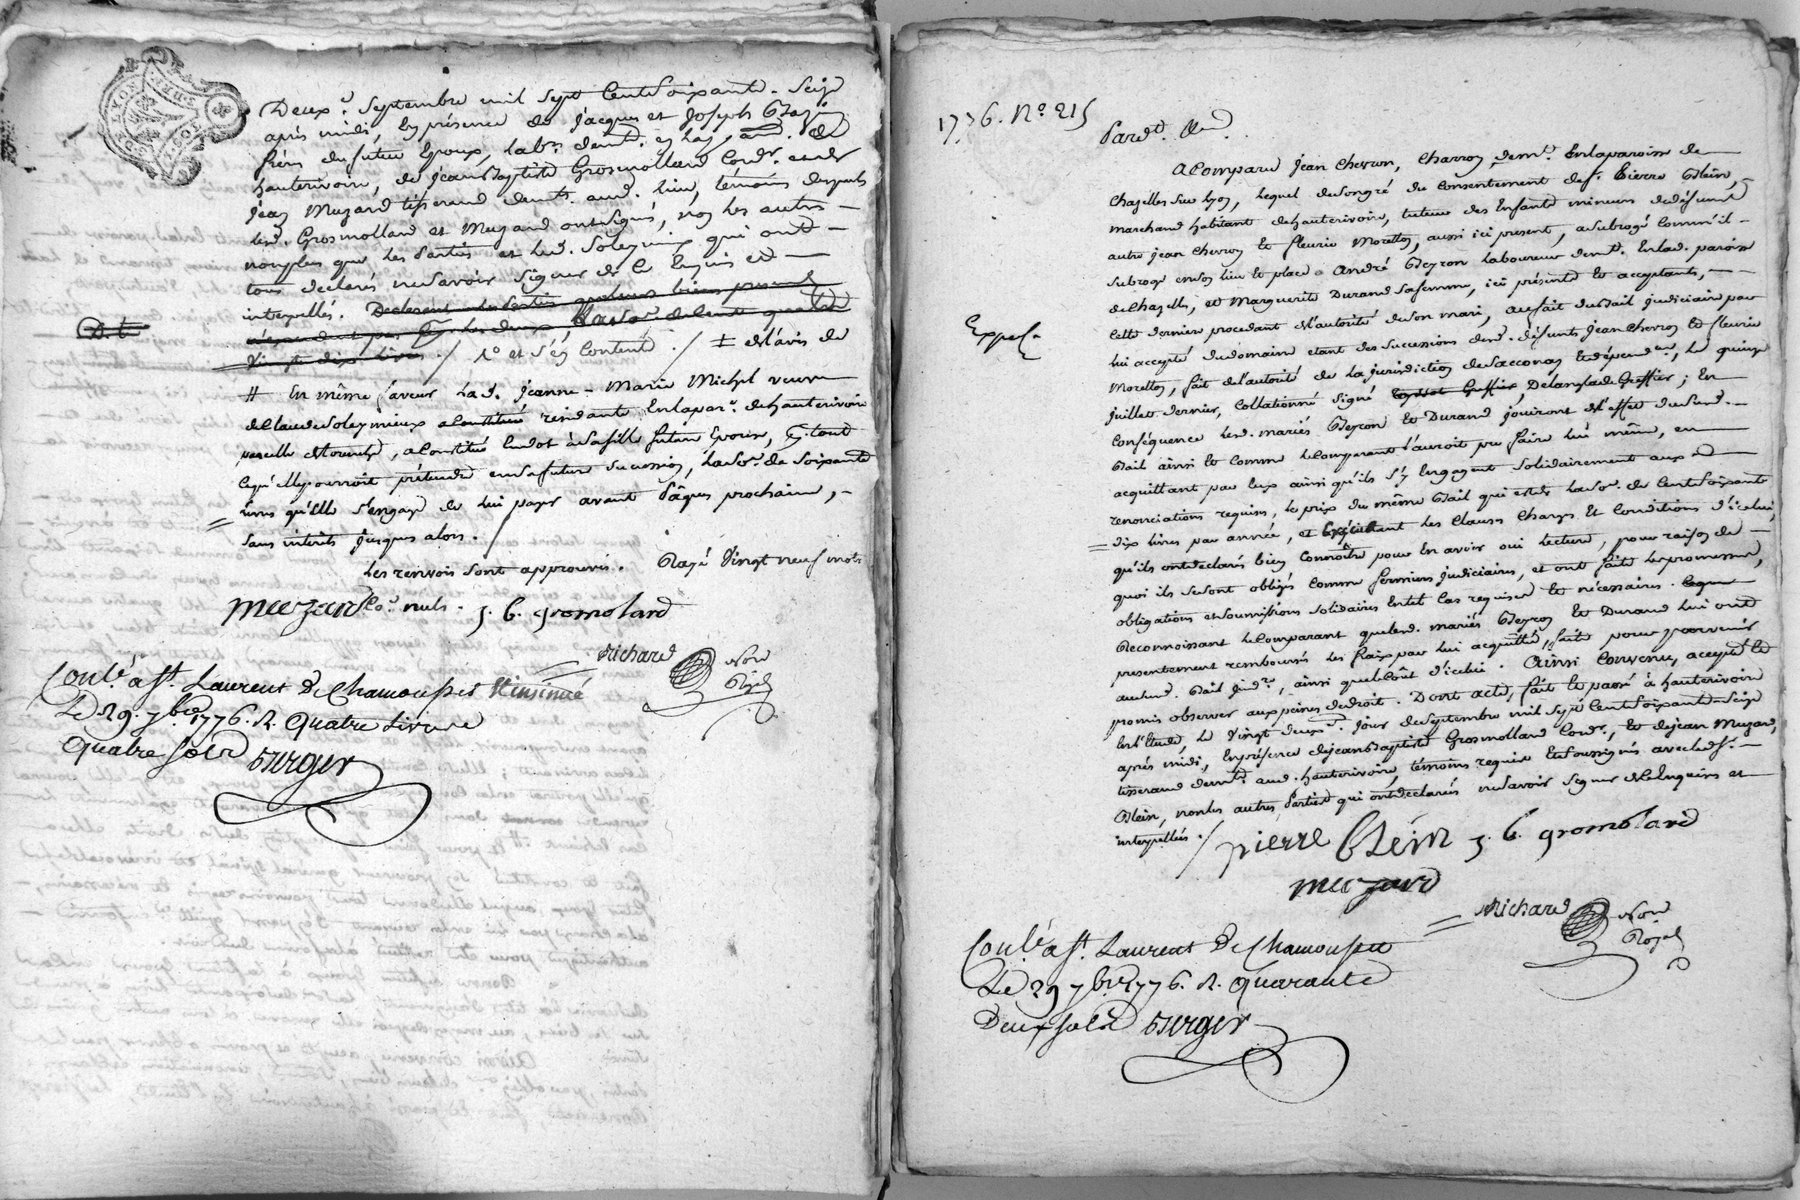 Deux.e Septembre mil sept cent soixante-Seize
après midi, En présence de Jacques et Joseph
frères du futur Epoux, lab.rs dem.t
hauterivoire, de Jean Baptiste Grosmolland Cord.r et de
Jean Muzard tisserand dem.ts aud. lieu, témoins
lesd. Grosmolland et Muzard ont signé, non les autres
non plus que les Parties et lad. Soleymieux qui ont
tous déclarés ne savoir signer de ce Enquis et
interpellés.
1.o et s'en Contente ./ ‡ de l'avis de
# En même faveur lad. Jeanne-Marie Michel veuve
de Claude Soleymieux résidante En la par.e de hauterivoire
a Constitué En dot à sa fille future Epouse,
ce qu'elle pourroit prétendre en sa future succession, la so.e de soixante
livres qu'elle s'engage de lui payer avant Pâques prochaine,
sans intérêts jusques alors.
Les renvois sont approuvés. Rayé Vingt neuf mots
muzard co.e nuls. j. b. gromolard
Richard No.re Royal
Con.lé à S.t Laurent De Chamousset & insinué
Le 29. 7bre 1776. R. Quatre Livres
Quatre sols Burger
1776. N.o 215
Pard.t
A Comparu Jean Chevron, Charron dem.t En la paroisse de
Chazelles sur Lyon, lequel de son gré du Consentement de s.r Pierre Blein,
marchand habitant de hauterivoire, tuteur des Enfants mineurs de défunt
autre Jean Chevron Et fleurie Morellon, aussi ici présent, a subrogé Comme il
subroge en son lieu et place André Beyron laboureur dem.t En lad. paroisse
de Chazelles, et Marguerite Durand sa femme, ici présents et acceptants,
cette dernière procédant de l'autorité de son mari, au fait du bail judiciaire par
Expéd.
lui accepté du domaine étant des successions desd. défunts Jean Chevron Et fleurie
Morellon, fait de l'autorité de la jurisdiction de Sacconay Et dépend.ces, le quinze
Juillet dernier, Collationné signé Delanglade Greffier ; En
Conséquence lesd. mariés Beyron Et Durand jouiront de l'effet dud.
Bail ainsi Et comme le Comparant l'auroit pu faire lui même, en
acquittant par Eux ainsi qu'ils s'y Engagent solidairement aux
renonciations requises, le prix du même Bail qui est de la so.e de Cent soixante
dix livres par année, et Exécutant les Clauses Charges Et Conditions d'icelui,
qu'ils ont déclarés bien Connoître pour En avoir oui lecture, pour raison de
quoi ils se sont obligés Comme fermiers judiciaires, et ont fait les promesses,
obligations et soumissions solidaires En tel Cas requises Et nécessaires.
Reconnoissant le Comparant que lesd. mariés Beyron Et Durand lui ont
présentement remboursés les fraix par lui acquittés faits pour parvenir
aud. Bail jud.re, ainsi que le Coût d'icelui. Ainsi Convenu, accepté Et
promis observer aux peines de droit. Dont acte, fait Et passé à hauterivoire
En l'Etude, le Vingt deux.e Jour de Septembre mil sept Cent Soixante-Seize
après midi, En présence de Jean Baptiste Grosmolland Cord.r, Et de Jean Muzard,
tisserand dem.ts aud. hauterivoire, témoins requis Et Soussignés avec led. s.r
Blein, non les autres Parties qui ont déclarés ne savoir signer de ce Enquis et
interpellés ./
pierre blein j. b. gromolard
muzard
Richard No.re Royal
Con.lé à S.t Laurent De Chamousset
Le 29 7bre 1776. R. Quarante
Deux sols Burger